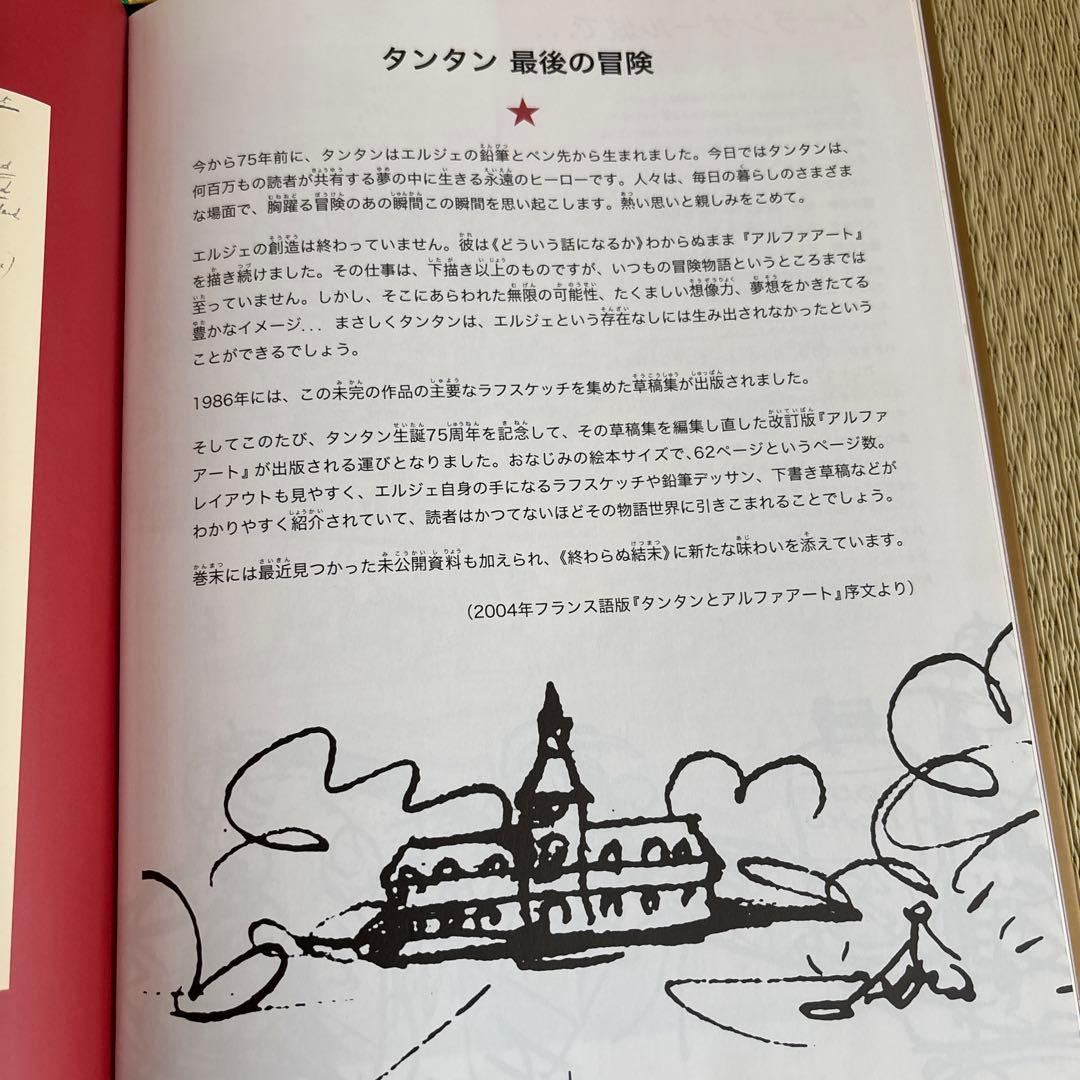 タンタン 最後の冒険
今から75年前に、タンタンはエルジェの鉛筆とペン先から生まれました。今日ではタンタンは、
何百万もの読者が共有する夢の中に生きる永遠のヒーローです。人々は、毎日の暮らしのさまざま
な場面で、胸躍る冒険のあの瞬間この瞬間を思い起こします。熱い思いと親しみをこめて。
エルジェの創造は終わっていません。彼は《どういう話になるか》わからぬまま『アルファアート』
を描き続けました。その仕事は、下描き以上のものですが、いつもの冒険物語というところまでは
至っていません。しかし、そこにあらわれた無限の可能性、たくましい想像力、夢想をかきたてる
豊かなイメージ... まさしくタンタンは、エルジェという存在なしには生み出されなかったという
ことができるでしょう。
1986年には、この未完の作品の主要なラフスケッチを集めた草稿集が出版されました。
そしてこのたび、タンタン生誕75周年を記念して、その草稿集を編集し直した改訂版『アルファ
アート』が出版される運びとなりました。おなじみの絵本サイズで、62ページというページ数。
レイアウトも見やすく、エルジェ自身の手になるラフスケッチや鉛筆デッサン、下書き草稿などが
わかりやすく紹介されていて、読者はかつてないほどその物語世界に引きこまれることでしょう。
巻末には最近見つかった未公開資料も加えられ、《終わらぬ結末》に新たな味わいを添えています。
(2004年フランス語版『タンタンとアルファアート』序文より)